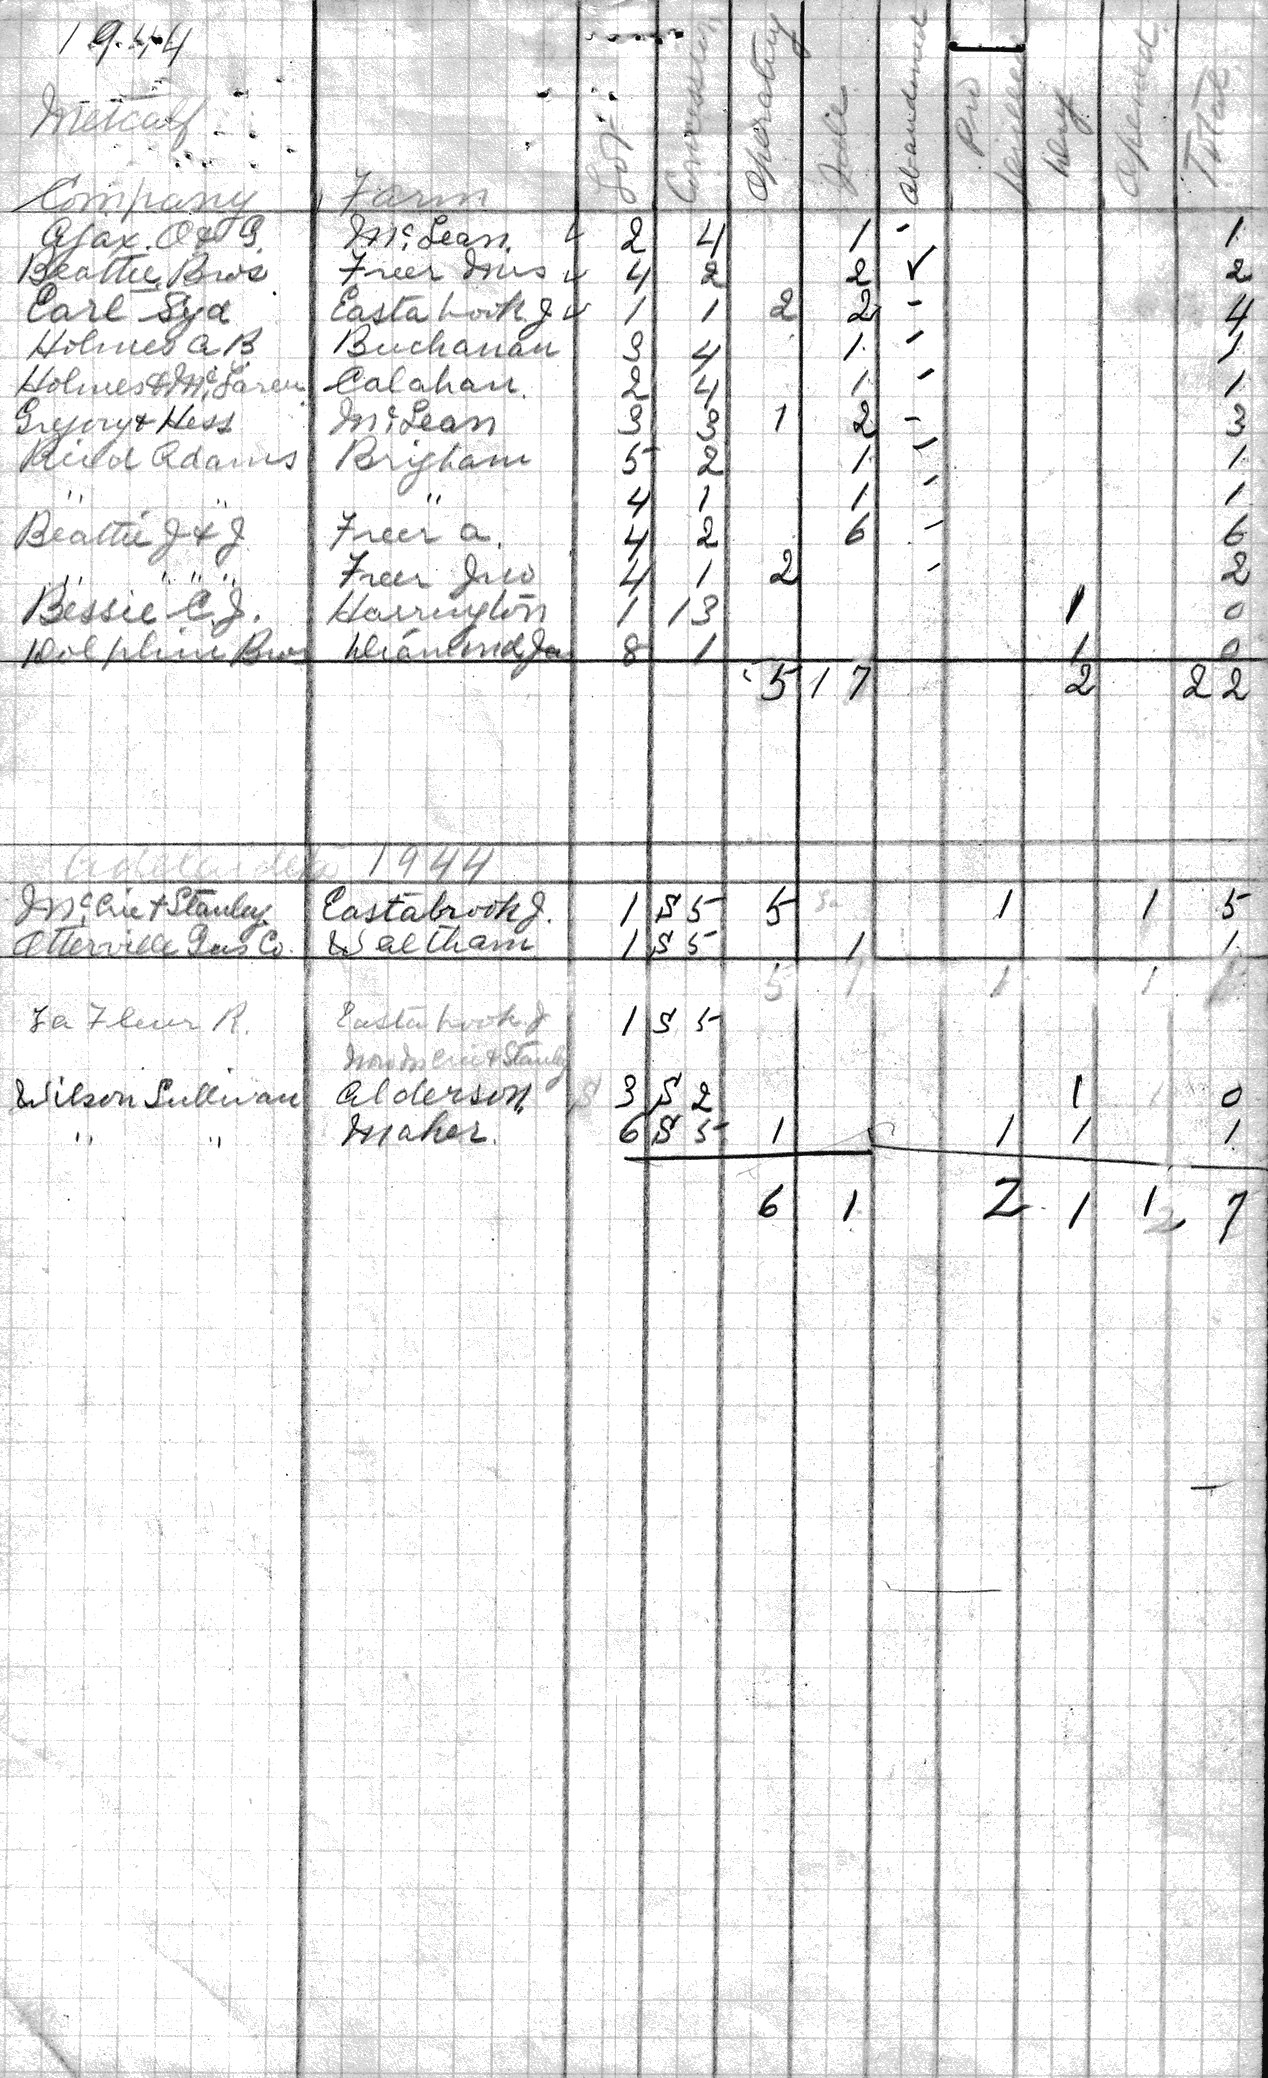 1944
Metcalf
Company Farm Lot Concession Operating Idle Abandoned Pro Drilled Dry Opened Total
Ajax. O & G. McLean. ✓ 2 4 1 - 1
Beattie Bros Freer Mrs ✓ 4 2 2 ✓ 2
Earl Syd Eastabrook J ✓ 1 1 2 2 - 4
Holmes A B Buchanan 3 4 1 - 1
Holmes & McLaren Calahan. 2 4 1 - 1
Gregory & Hess McLean 3 3 1 2 - 3
Reid Adams Brigham 5 2 1 - 1
" " " 4 1 1 - 1
Beattie J & J Freer A. 4 2 6 - 6
" " " " Freer Jno 4 1 2 - 2
Bessie C. J. Harrington 1 13 1 0
Dolphine Bros Diamond Jas 8 1 1 0
5 17 2 22
Adelaide 1944
McCrie & Stanley Eastabrook J. 1 S 5 5 1 1 5
Otterville Gas Co. Waltham 1 S 5 1 1
5 1 1 1
La Fleur R. Eastabrook J 1 S 5
Now McCrie & Stanley
Wilson Sullivan Alderson 3 S 2 1 0
" " Maher. 6 S 5 1 1 1 1
6 1 2 1 1 7